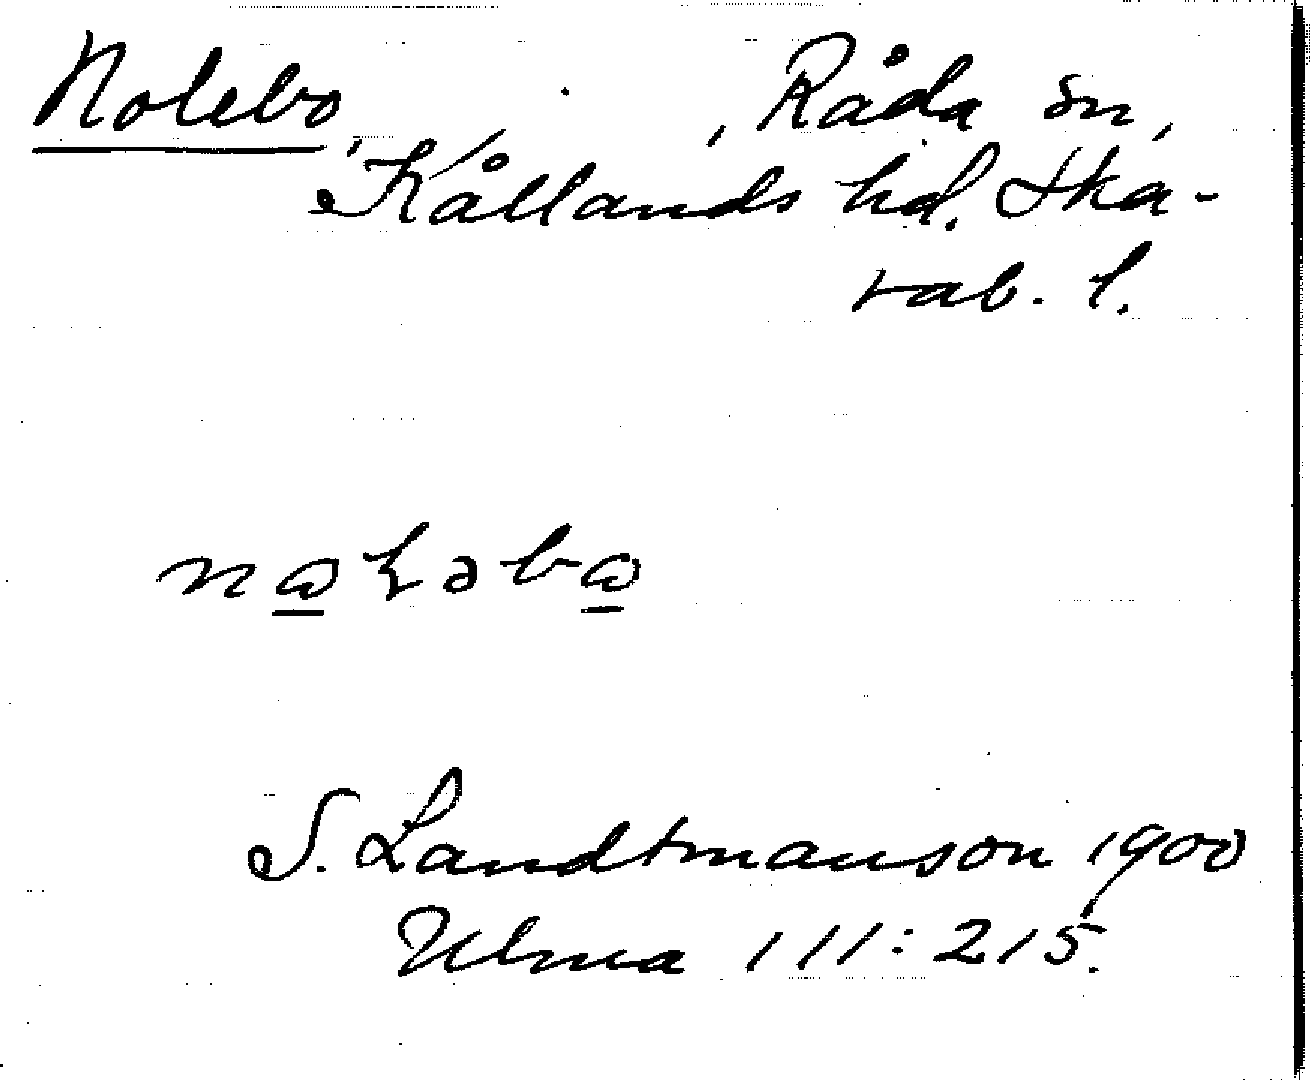 Nolebo, , Råda sn,
Kållands hd. Ska-
rab. l.
nɷɽəbɷ
S. Landtmanson 1900
Ulma 111:215.